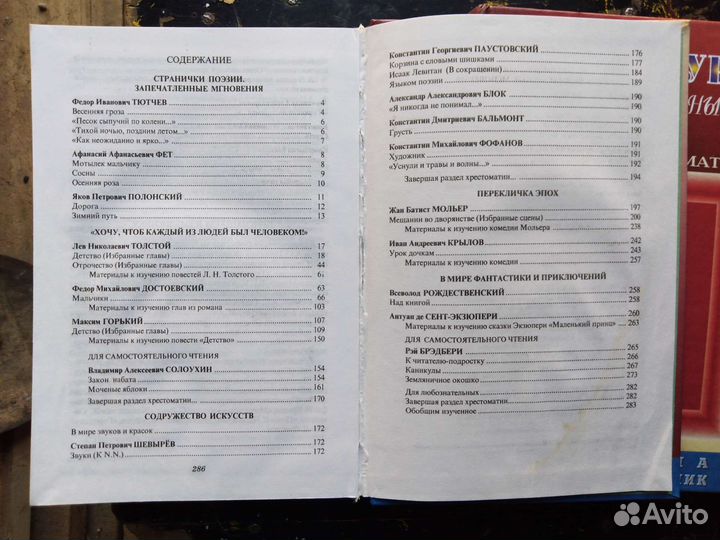 СОДЕРЖАНИЕ
СТРАНИЧКИ ПОЭЗИИ.
ЗАПЕЧАТЛЕННЫЕ МГНОВЕНИЯ
Федор Иванович ТЮТЧЕВ 4
Весенняя гроза 4
«Песок сыпучий по колени...» 6
«Тихой ночью, поздним летом...» 6
«Как неожиданно и ярко...» 7
Афанасий Афанасьевич ФЕТ 8
Мотылек мальчику 8
Сосны 9
Осенняя роза 10
Яков Петрович ПОЛОНСКИЙ 11
Дорога 12
Зимний путь 13
«ХОЧУ, ЧТОБ КАЖДЫЙ ИЗ ЛЮДЕЙ БЫЛ ЧЕЛОВЕКОМ!»
Лев Николаевич ТОЛСТОЙ 17
Детство (Избранные главы) 18
Отрочество (Избранные главы) 44
Материалы к изучению повестей Л. Н. Толстого 60
Федор Михайлович ДОСТОЕВСКИЙ 63
Мальчики 66
Материалы к изучению глав из романа 103
Максим ГОРЬКИЙ 107
Детство (Избранные главы) 109
Материалы к изучению повести «Детство» 150
ДЛЯ САМОСТОЯТЕЛЬНОГО ЧТЕНИЯ
Владимир Алексеевич СОЛОУХИН 154
Закон набата 154
Моченые яблоки 161
Завершая раздел хрестоматии... 170
СОДРУЖЕСТВО ИСКУССТВ
В мире звуков и красок 172
Степан Петрович ШЕВЫРЁВ 172
Звуки (К N.N.) 172
286
Константин Георгиевич ПАУСТОВСКИЙ 176
Корзина с еловыми шишками 177
Исаак Левитан (В сокращении) 184
Языком поэзии 189
Александр Александрович БЛОК 190
«Я никогда не понимал...» 190
Константин Дмитриевич БАЛЬМОНТ 190
Грусть 190
Константин Михайлович ФОФАНОВ 191
Художник 191
«Уснули и травы и волны...» 192
Завершая раздел хрестоматии... 194
ПЕРЕКЛИЧКА ЭПОХ
Жан Батист МОЛЬЕР 197
Мещанин во дворянстве (Избранные сцены) 200
Материалы к изучению комедии Мольера 238
Иван Андреевич КРЫЛОВ 242
Урок дочкам 243
Материалы к изучению комедии 257
В МИРЕ ФАНТАСТИКИ И ПРИКЛЮЧЕНИЙ
Всеволод РОЖДЕСТВЕНСКИЙ 258
Над книгой 258
Антуан де СЕНТ-ЭКЗЮПЕРИ 260
Материалы к изучению сказки Экзюпери «Маленький принц» 263
ДЛЯ САМОСТОЯТЕЛЬНОГО ЧТЕНИЯ
Рэй БРЭДБЕРИ 265
К читателю-подростку 266
Каникулы 267
Земляничное окошко 273
Для любознательных 282
Завершая раздел хрестоматии... 282
Обобщим изученное 283
МАТ
Avito